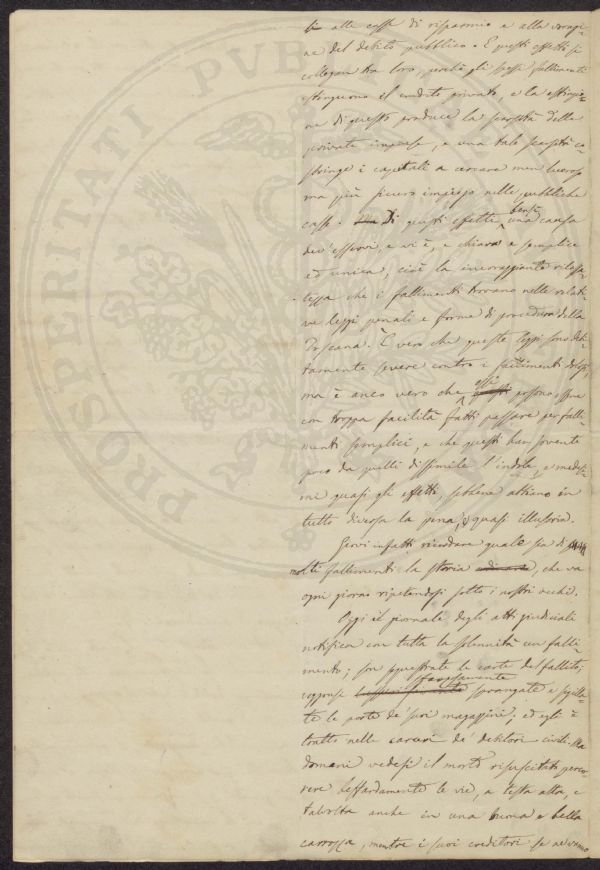 ti alle casse di risparmio e alla voragi-
ne del debito pubblico. E questi effetti si
collegan tra loro, perchè gli spessi fallimenti
estinguono il credito privato, e la estinzio-
ne di questo produce la scarsità delle
private imprese, e una tale scarsità co-
stringe i capitali a cercare men lucroso
ma più sicuro impiego nelle pubbliche
casse. Di questi effetti bensì una causa
dev'esservi, e vi è, e chiara e semplice
ed unica, cioè la incoraggiante rilassa-
tezza che i fallimenti trovano nelle relati-
ve leggi penali e forme di procedura della
Toscana. È vero che queste leggi sono
severe contro i fallimenti dolosi,
ma è anco vero che essi possono essere
con troppa facilità fatti passare per falli-
menti semplici, e che questi han sovente
poco da quelli dissimile l'indole, e medesi-
mi quasi gli effetti, sebbene abbiano in
tutto diversa la pena, e quasi illusoria.
Giovi infatti ricordare quale sia di
molti fallimenti la storia, che va
ogni giorno ripetendosi sotto i nostri occhi.
Oggi il giornale degli atti giudiciali
notifica con tutta la solennità un falli-
mento; son sequestrate le carte del fallito;
veggonsi sprangate e sigilla-
te le porte de' suoi magazzini; ed egli è
tratto nelle carceri de' debitori civili. Ma
domani vedesi il morto risuscitato percor-
rere beffardamente le vie, a testa alta, e
talvolta anche in una buona e bella
carrozza, mentre i suoi creditori se ne vanno